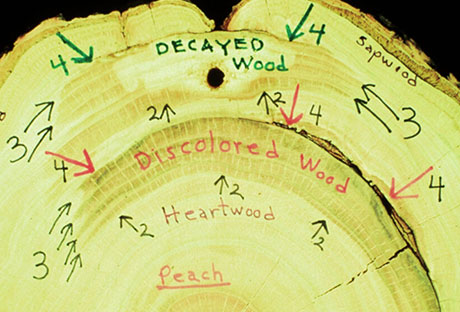 DECAYED
Wood
4
4
Sapwood
3
2
2
4
3
4
Discolored Wood
4
2
Heartwood
2
2
3
Peach